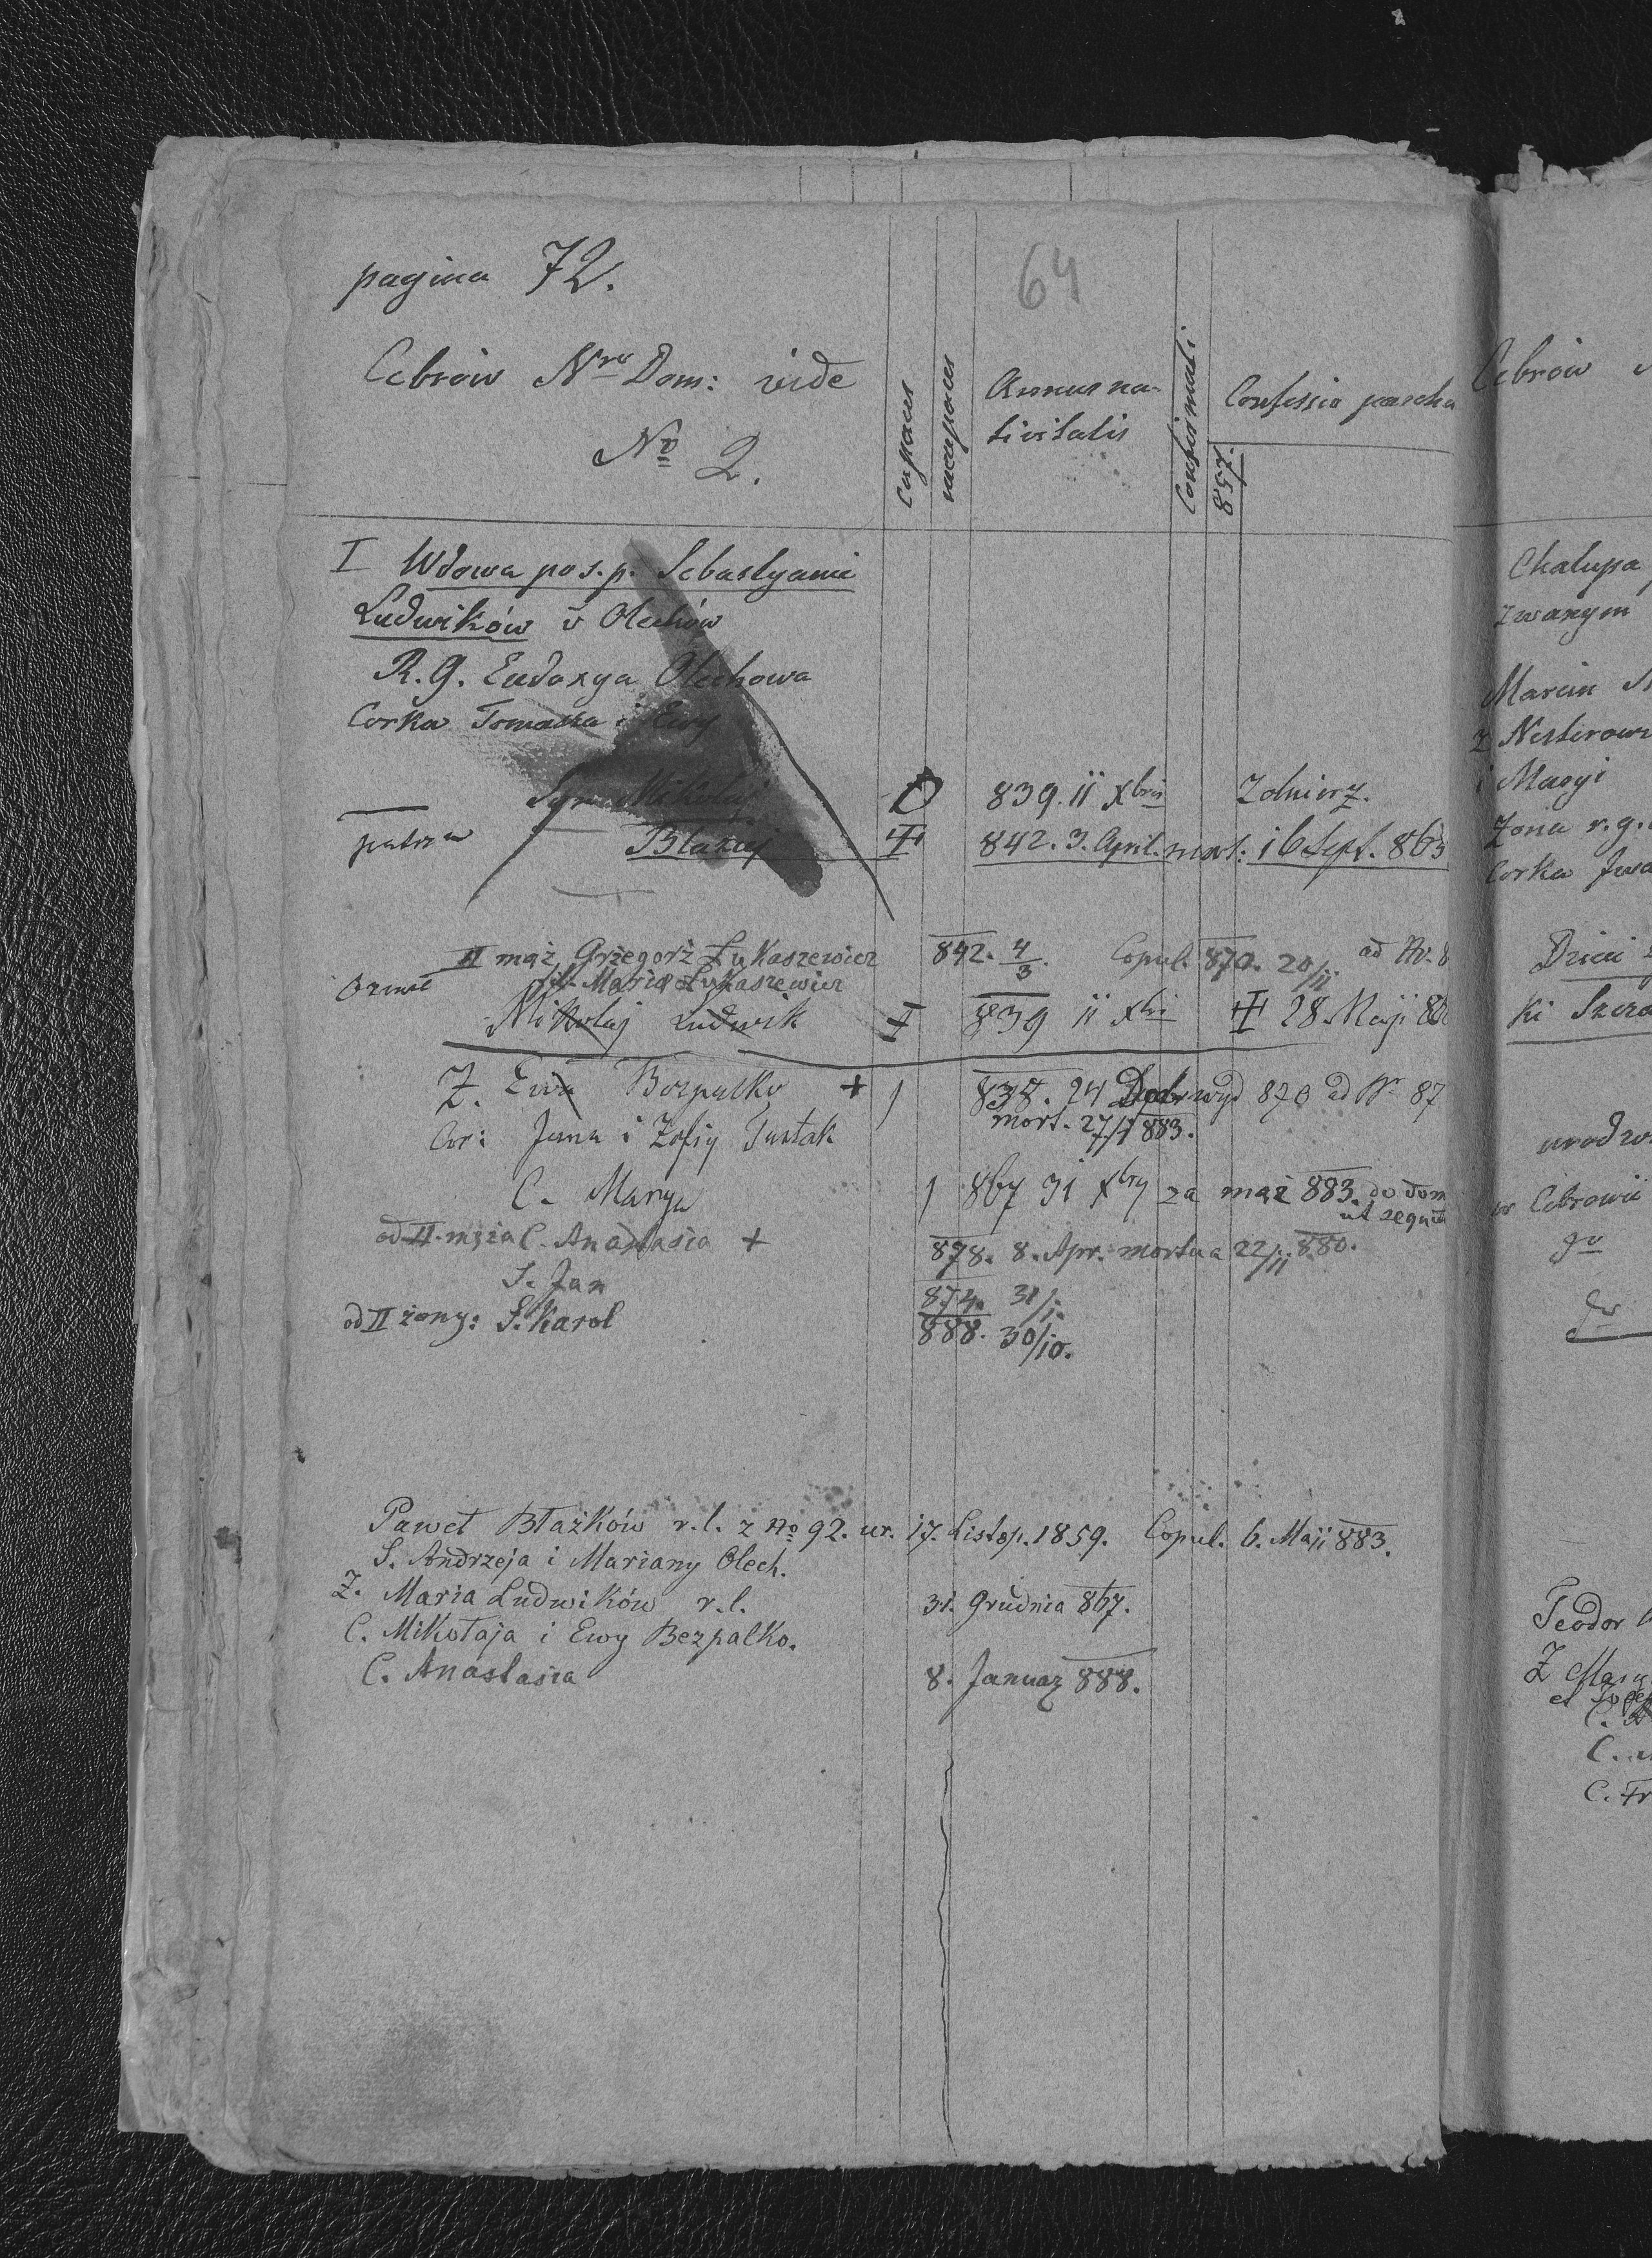 pagina 72.
64
Cebrow Nro Dom: vide
No 2.
capaces
incapaces
Annus na-
tivitatis
Confirmati
Confessio pascha
857.
I Wdowa po s.p. Sebastyanie
Ludwików v Olechów
R.g. Eudoxya Olechowa
Corka Tomasza i Ewy
Syn Mikołaj 839. 11 Xbris Zolnierz.
patrz Błażej 842. 3. April. mort: 16 Sept. 863
II mąż Grzegorz Łukaszewicz 842. 4/3. Copul. 870. 20/11 ad Nr. 8
fil. Maria Łukaszewicz
Mikołaj Ludwik 839 11 Xbris 28 Maji
Z. Ewa Bezpalko + 1 838. 24 870 ad Nr 87
mort. 27/1 883.
Cor: Jana i Zofiy Tustak
C. Marya 1 867 31 Xbry za mąż 883. do dom
ut sequit
od II męża C. Anastasia + 878. 8. Apr. mortua 22/11 880.
S. Jan 874. 31/1.
od II żony: S. Karol 888. 30/10.
Paweł Błażków r.l. z No 92. ur. 17. Listop. 1859. Copul. 6. Maji 883.
S. Andrzeja i Mariany Olech.
Z. Maria Ludwików r.l. 31. Grudnia 867.
C. Mikołaja i Ewy Bezpalko.
C. Anastasia 8. Januar 888.
Cebrow
Chałupa
zwanym
Marcin
z Nesterow
i Maryi
Zona r.g.
Corka Iwa
Dzieci
ki
urodzo
w Cebrowie
go
Teodor
Z Mary
et
C.
C.
C. Fr